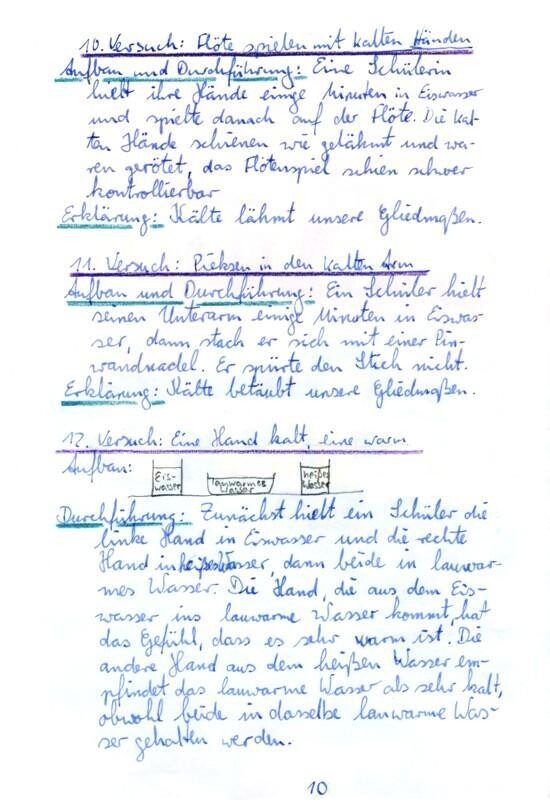 10. Versuch: Flöte spielen mit kalten Händen
Aufbau und Durchführung: Eine Schülerin
hielt ihre Hände einige Minuten in Eiswasser
und spielte danach auf der Flöte. Die kal-
ten Hände schienen wie gelähmt und wa-
ren gerötet, das Flötenspiel schien schwer
kontrollierbar
Erklärung: Kälte lähmt unsere Gliedmaßen.
11. Versuch: Pieksen in den kalten Arm
Aufbau und Durchführung: Ein Schüler hielt
seinen Unterarm einige Minuten in Eiswas-
ser, dann stach er sich mit einer Pin-
wandnadel. Er spürte den Stich nicht.
Erklärung: Kälte betäubt unsere Gliedmaßen.
12. Versuch: Eine Hand kalt, eine warm
Aufbau:
Eis-
wasser
lauwarmes
Wasser
heißes
Wasser
Durchführung: Zunächst hielt ein Schüler die
linke Hand in Eiswasser und die rechte
Hand in heißes Wasser, dann beide in lauwar-
mes Wasser. Die Hand, die aus dem Eis-
wasser ins lauwarme Wasser kommt, hat
das Gefühl, dass es sehr warm ist. Die
andere Hand aus dem heißen Wasser em-
pfindet das lauwarme Wasser als sehr kalt,
obwohl beide in dasselbe lauwarme Was-
ser gehalten werden.
10